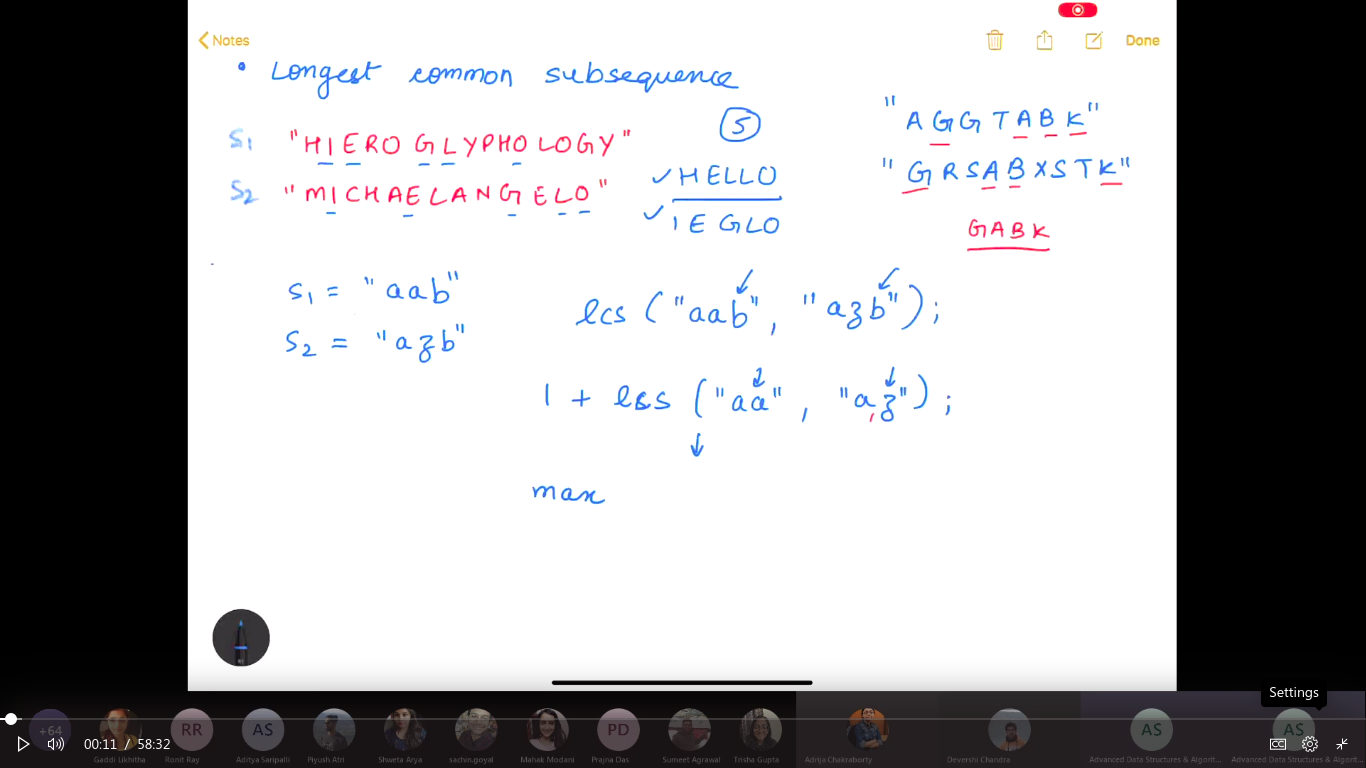 Notes
Done
• Longest common subsequence
S1 "HIEROGLYPHOLOGY"
S2 "MICHAELANGELO"
5
✓ HELLO
✓ IEGLO
"AGGTABK"
"GRSABXSTK"
GABK
S1 = "aab"
S2 = "azb"
lcs ("aab", "azb");
1 + lcs ("aa", "az");
max
Settings
+64
RR
AS
PD
AS
AS
Gaddi Likhitha
Ronit Ray
Aditya Saripalli
Piyush Atri
Shweta Arya
sachin.goyal
Mahak Modani
Prajna Das
Sumeet Agrawal
Trisha Gupta
Adrija Chakraborty
Devershi Chandra
Advanced Data Structures & Algorit...
Advanced Data Structures & Algorit...
00:11 / 58:32
CC